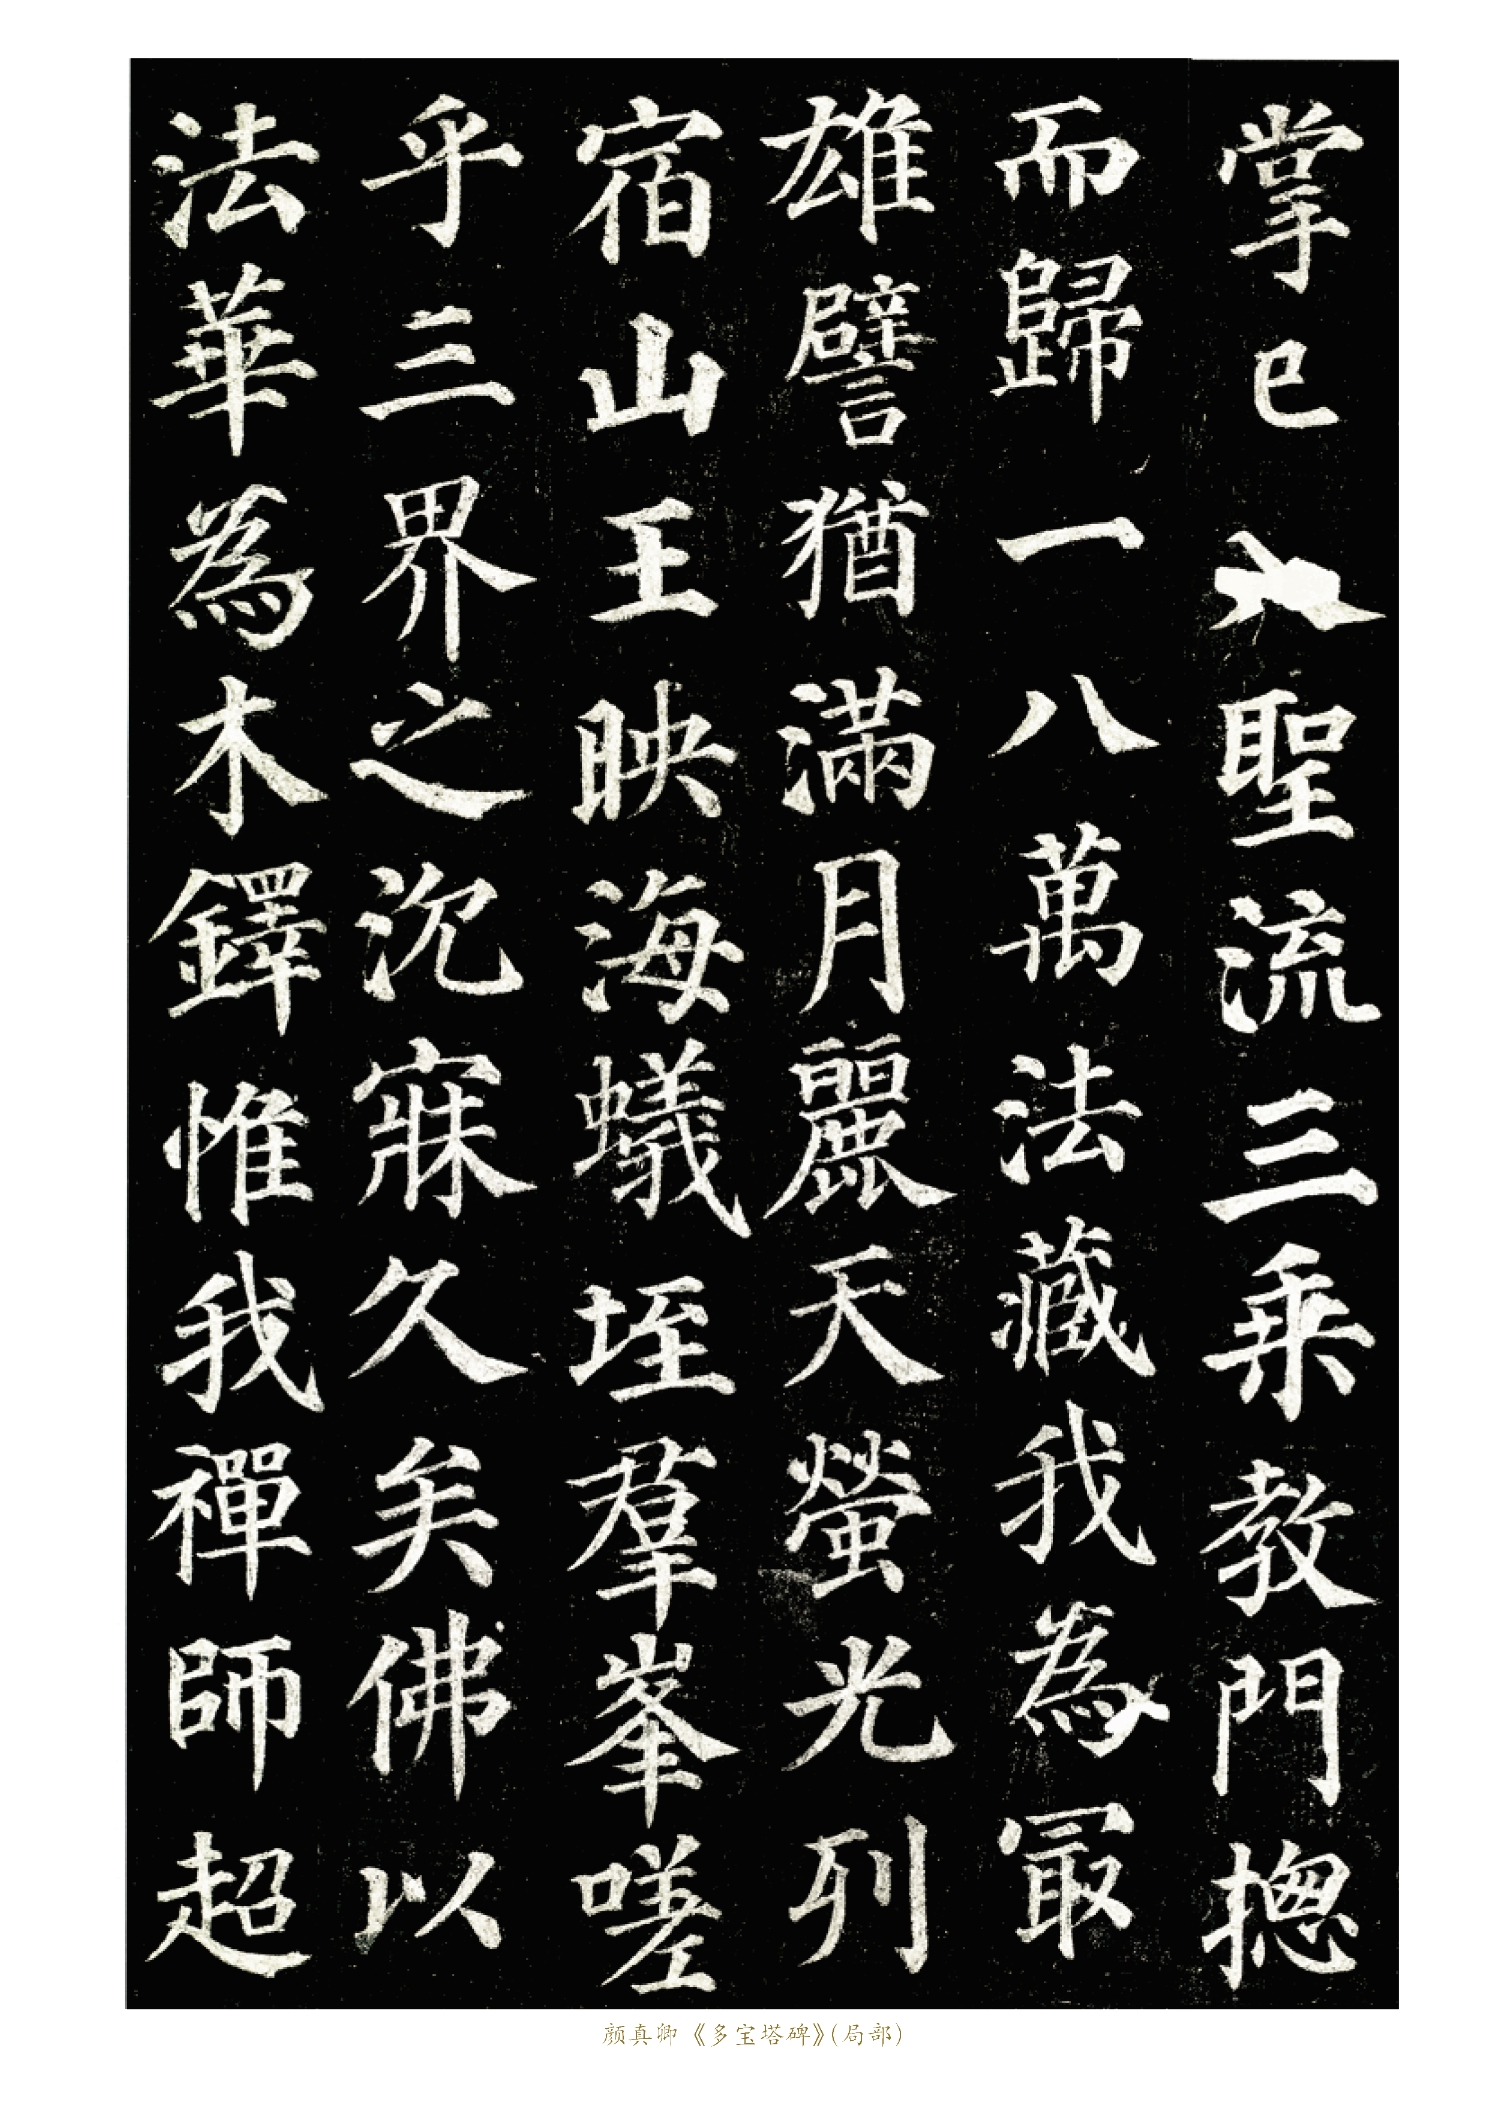 掌已聖流三乘教門揔
而歸一八萬法藏我為冣
雄譬猶滿月麗天螢光列
宿山王映海蟻垤羣峯嗟
乎三界之沉寐久矣佛以
法華為木鐸惟我禪師超
颜真卿《多宝塔碑》(局部)